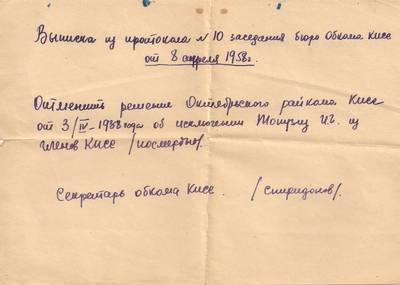 Выписка из протокола N 10 заседания бюро Обкома КПСС
от 8 апреля 1958г.
Отменить решение Октябрьского райкома КПСС
от 3/IV-1938 года об исключении И.Г. из
членов КПСС /посмертно/.
Секретарь обкома КПСС. /Спиридонов/.